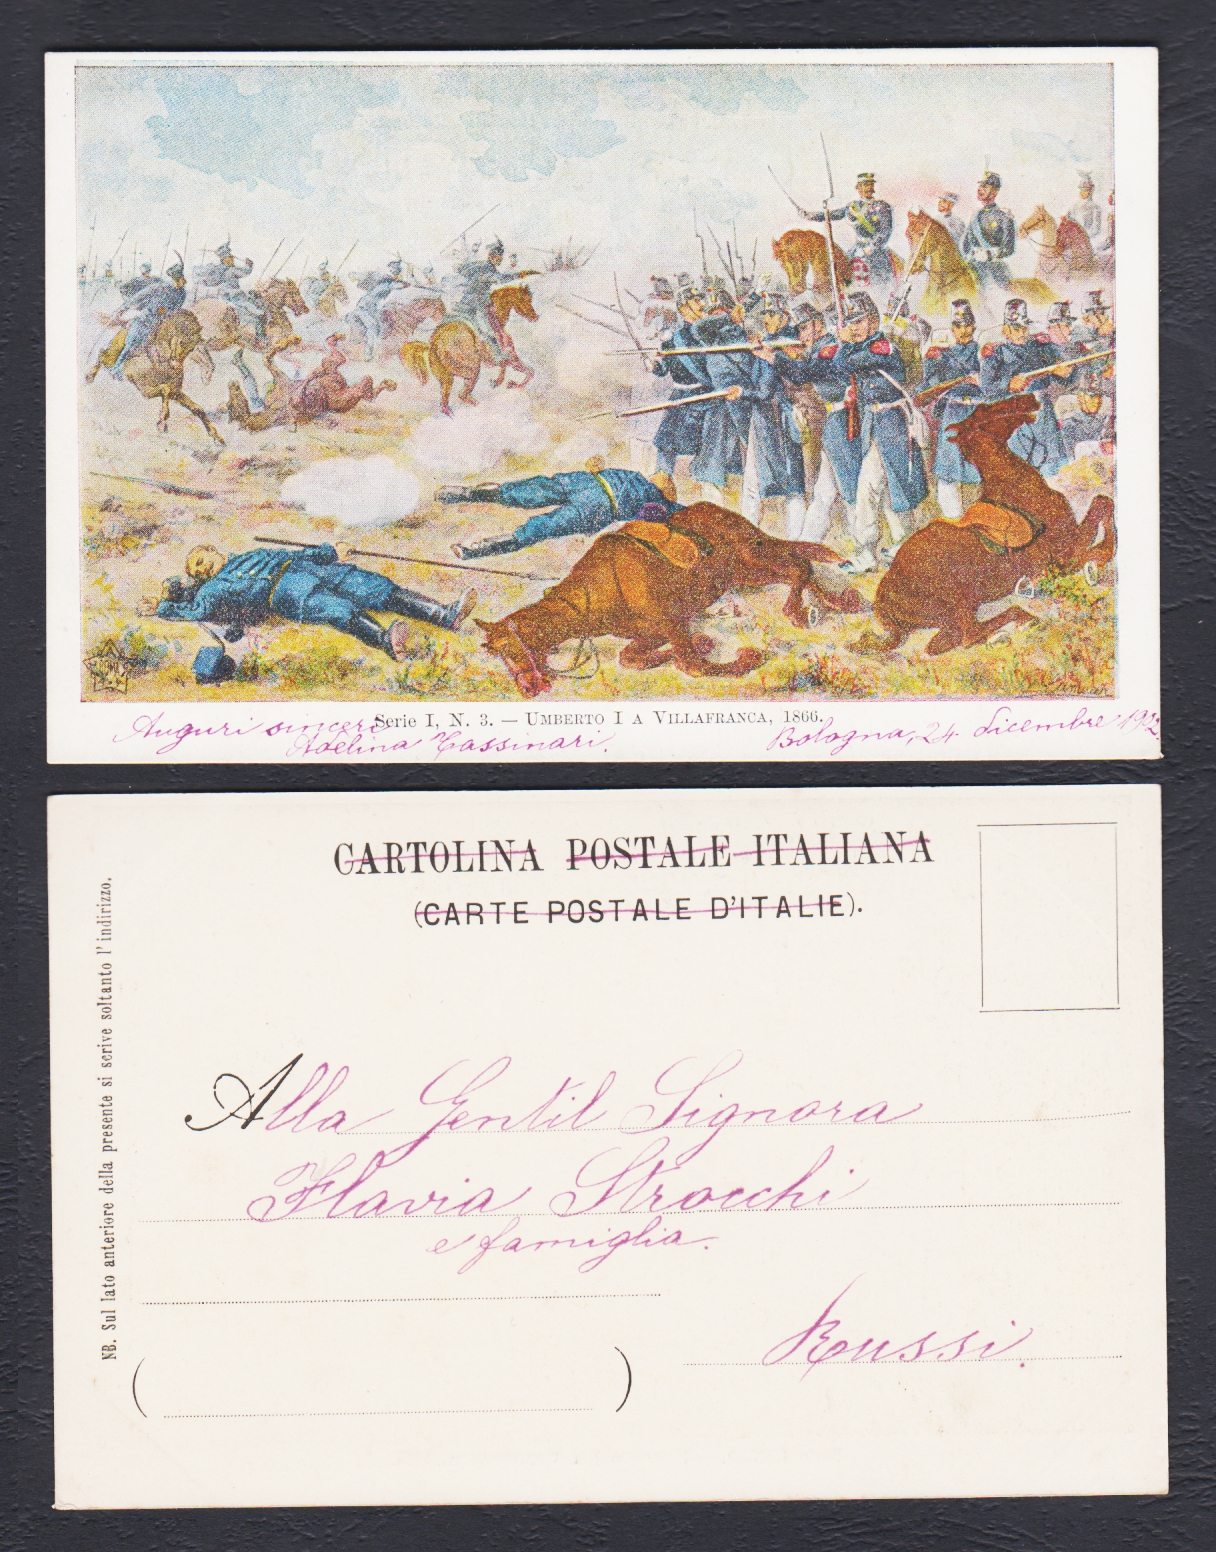 Serie I, N. 3. — UMBERTO I A VILLAFRANCA, 1866.
Auguri sinceri
Adelina Tassinari.
Bologna, 24 dicembre 1902
CARTOLINA POSTALE ITALIANA
(CARTE POSTALE D'ITALIE).
NB. Sul lato anteriore della presente si scrive soltanto l'indirizzo.
Alla Gentil Signora
Flavia Strocchi
e famiglia.
Russi.